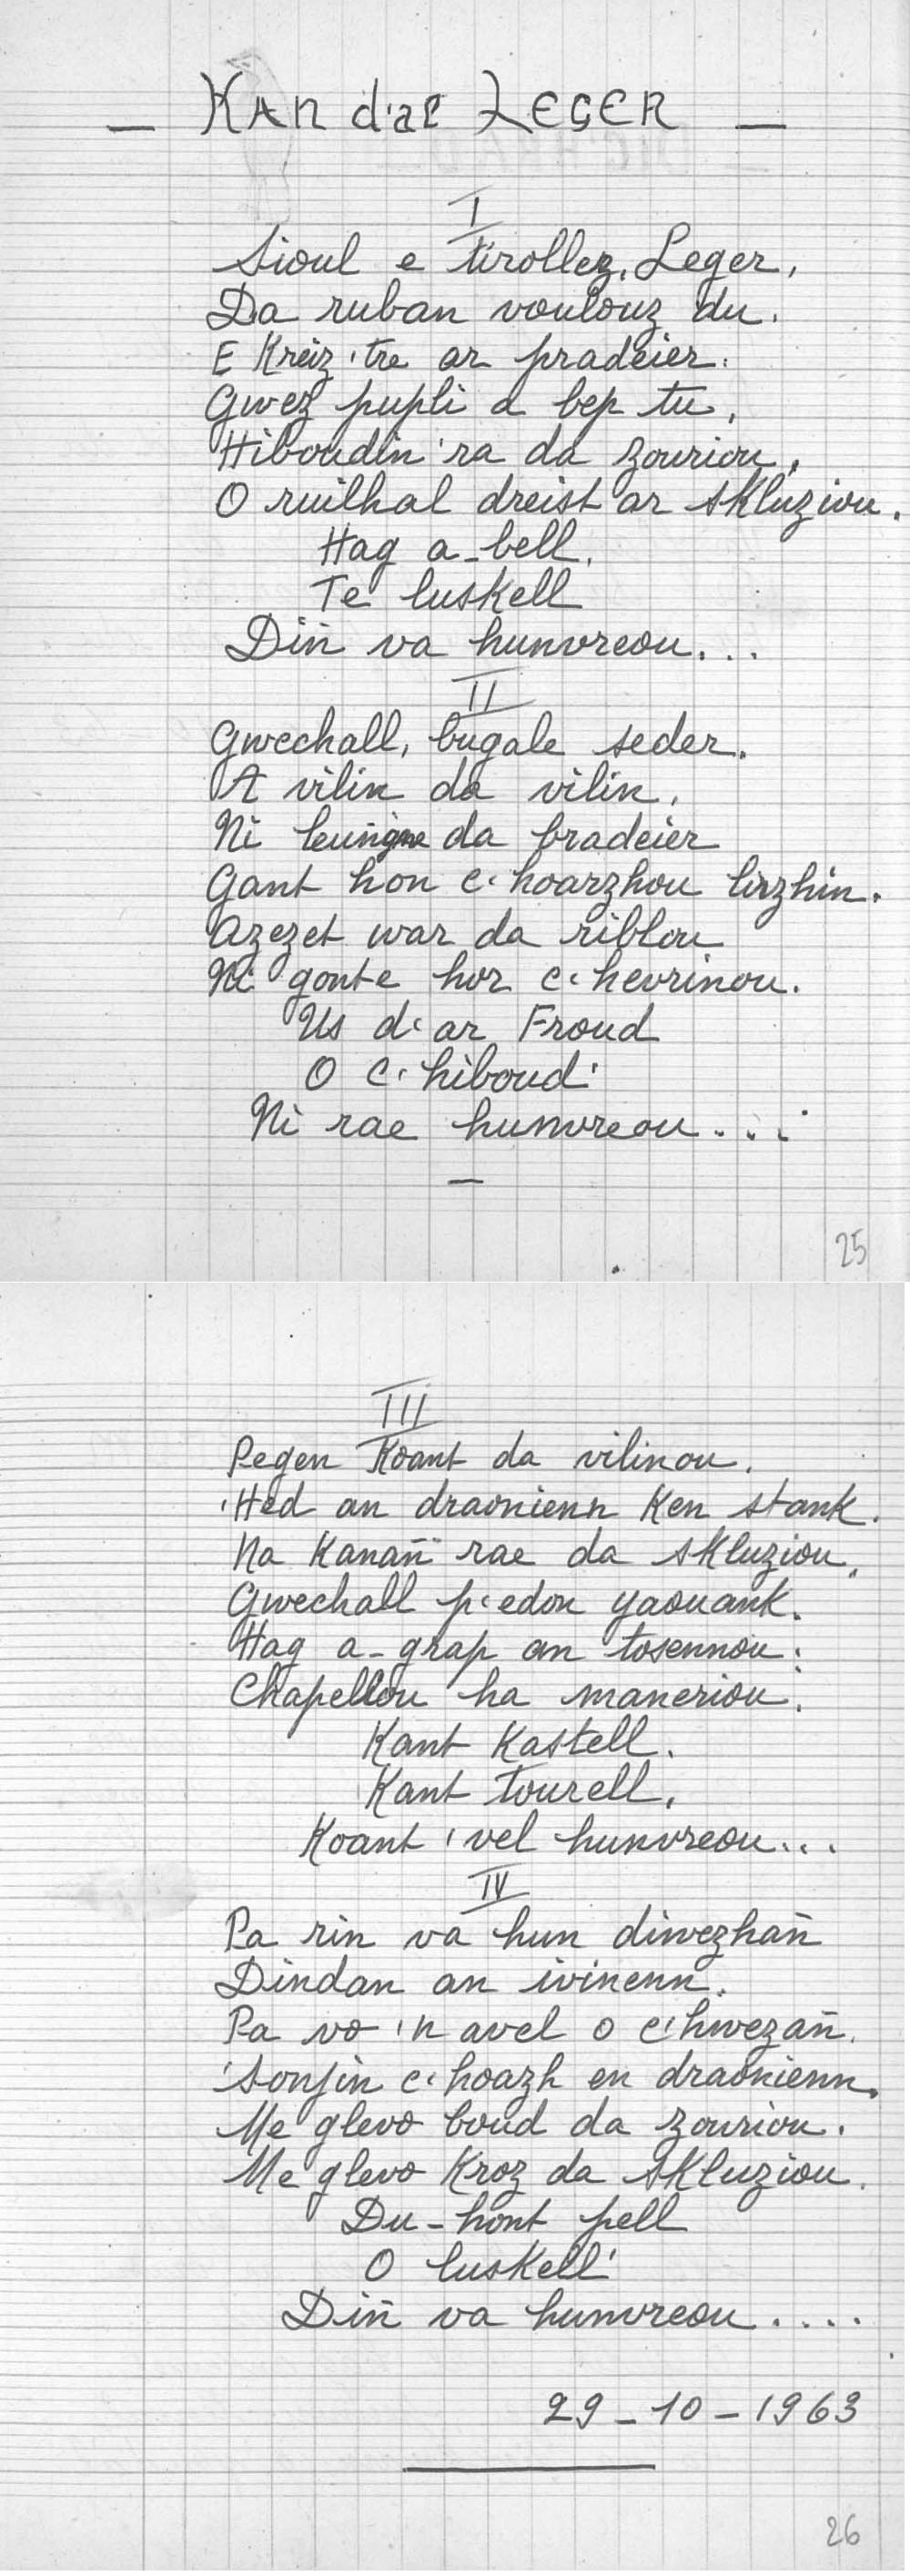 — KAN d'al LEGER —
I
Sioul e tirollez, Leger,
Da ruban voulouz du.
E Kreiz 'tre ar pradeier.
Gwez pupli a bep tu,
Hiboudin 'ra da zouriou,
O ruilhal dreist ar skluziou.
Hag a-bell,
Te luskell
Diñ va hunvreou...
II
Gwechall, bugale seder.
A vilin da vilin,
Ni leunigne da bradeier
Gant hon c'hoarzhou lirzhin.
Azezet war da riblou
Ni gonte hor c'hevrinou.
Us d'ar Froud
O c'hiboud'
Ni rae hunvreou...
—
25
III
Pegen Koant da vilinou.
'Hed an draonienn Ken stank.
Na Kanañ rae da skluziou,
Gwechall p'edon yaouank.
Hag a-grap an tosennou:
Chapellou ha maneriou:
Kant Kastell.
Kant Tourell,
Koant 'vel hunvreou...
IV
Pa rin va hun diwezhañ
Dindan an ivinenn.
Pa vo 'n avel o c'hwezañ,
'Sonjin c'hoazh en draonienn.
Me glevo boud da zouriou.
Me glevo Kroz da skluziou.
Du-hont pell
O luskell'
Diñ va hunvreou....
29-10-1963
26